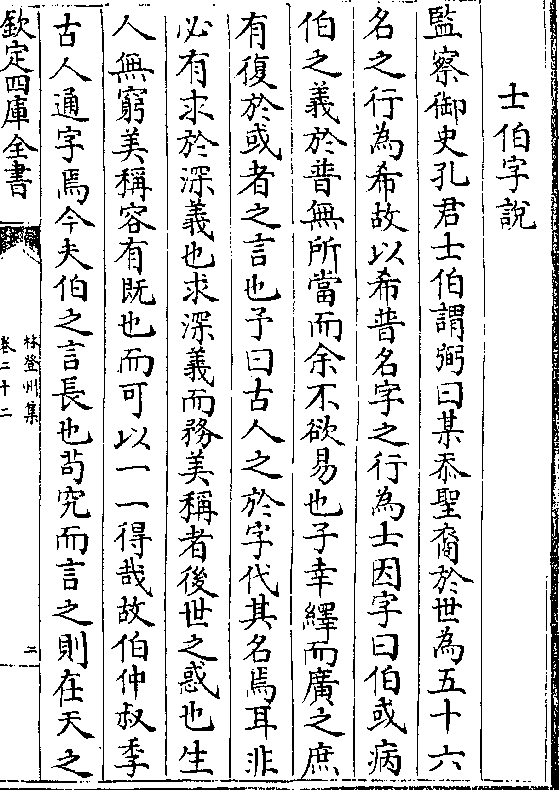 士伯字說
監察御史孔君士伯謂弼曰某忝聖裔於世為五十六
名之行為希故以希普名字之行為士因字曰伯或病
伯之義於普無所當而余不欲易也子幸繹而廣之庶
有復於或者之言也予曰古人之於字代其名焉耳非
必有求於深義也求深義而務美稱者後世之惑也生
人無窮美稱容有既也而可以一一得哉故伯仲叔季
古人通字焉今夫伯之言長也苟究而言之則在天之
欽定四庫全書
林登州集
卷二十二
二